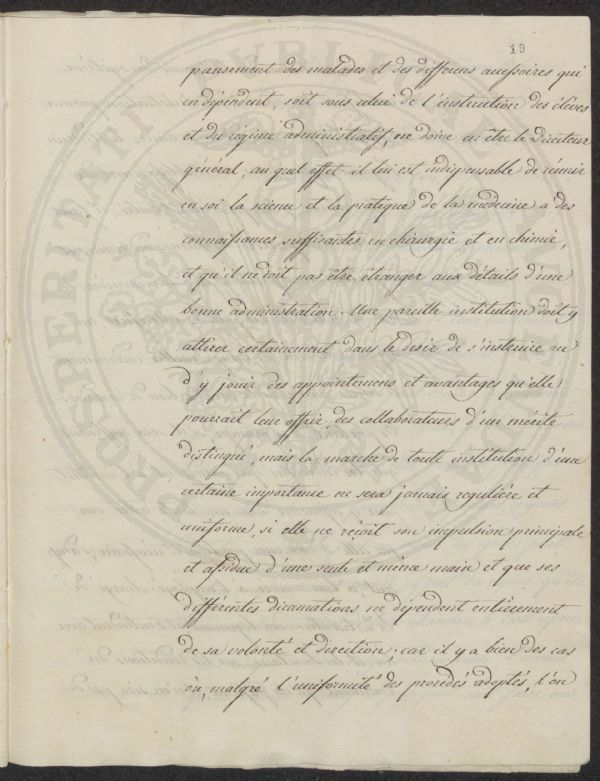 19
pansement des malades et des differens accessoires qui
en dépendent, soit sous celui de l'instruction des élèves
et du régime administratif, ne doive en être le Directeur
général, au quel effet il lui est indispensable de réunir
en soi la science et la pratique de la medecine a des
connaissances suffisantes en chirurgie et en chimie,
et qu'il ne doit pas etre étranger aux détails d'une
bonne administration. Une pareille institution doit y
attirer certainement dans le desir de s'instruire ou
d'y jouir des appointemens et avantages qu'elle
pourrait leur offrir, des collaborateurs d'un mérite
distingué, mais la marche de toute institution d'une
certaine importance ne sera jamais regulière et
uniforme, si elle ne reçoit son impulsion principale
et assidue d'une seule et même main et que ses
différentes ramations ne dépendent entièrement
de sa volonté et direction; car il y a bien des cas
où, malgré l'uniformité des procedés adoptés, l'on
PROSPERITATI PUBLICAE